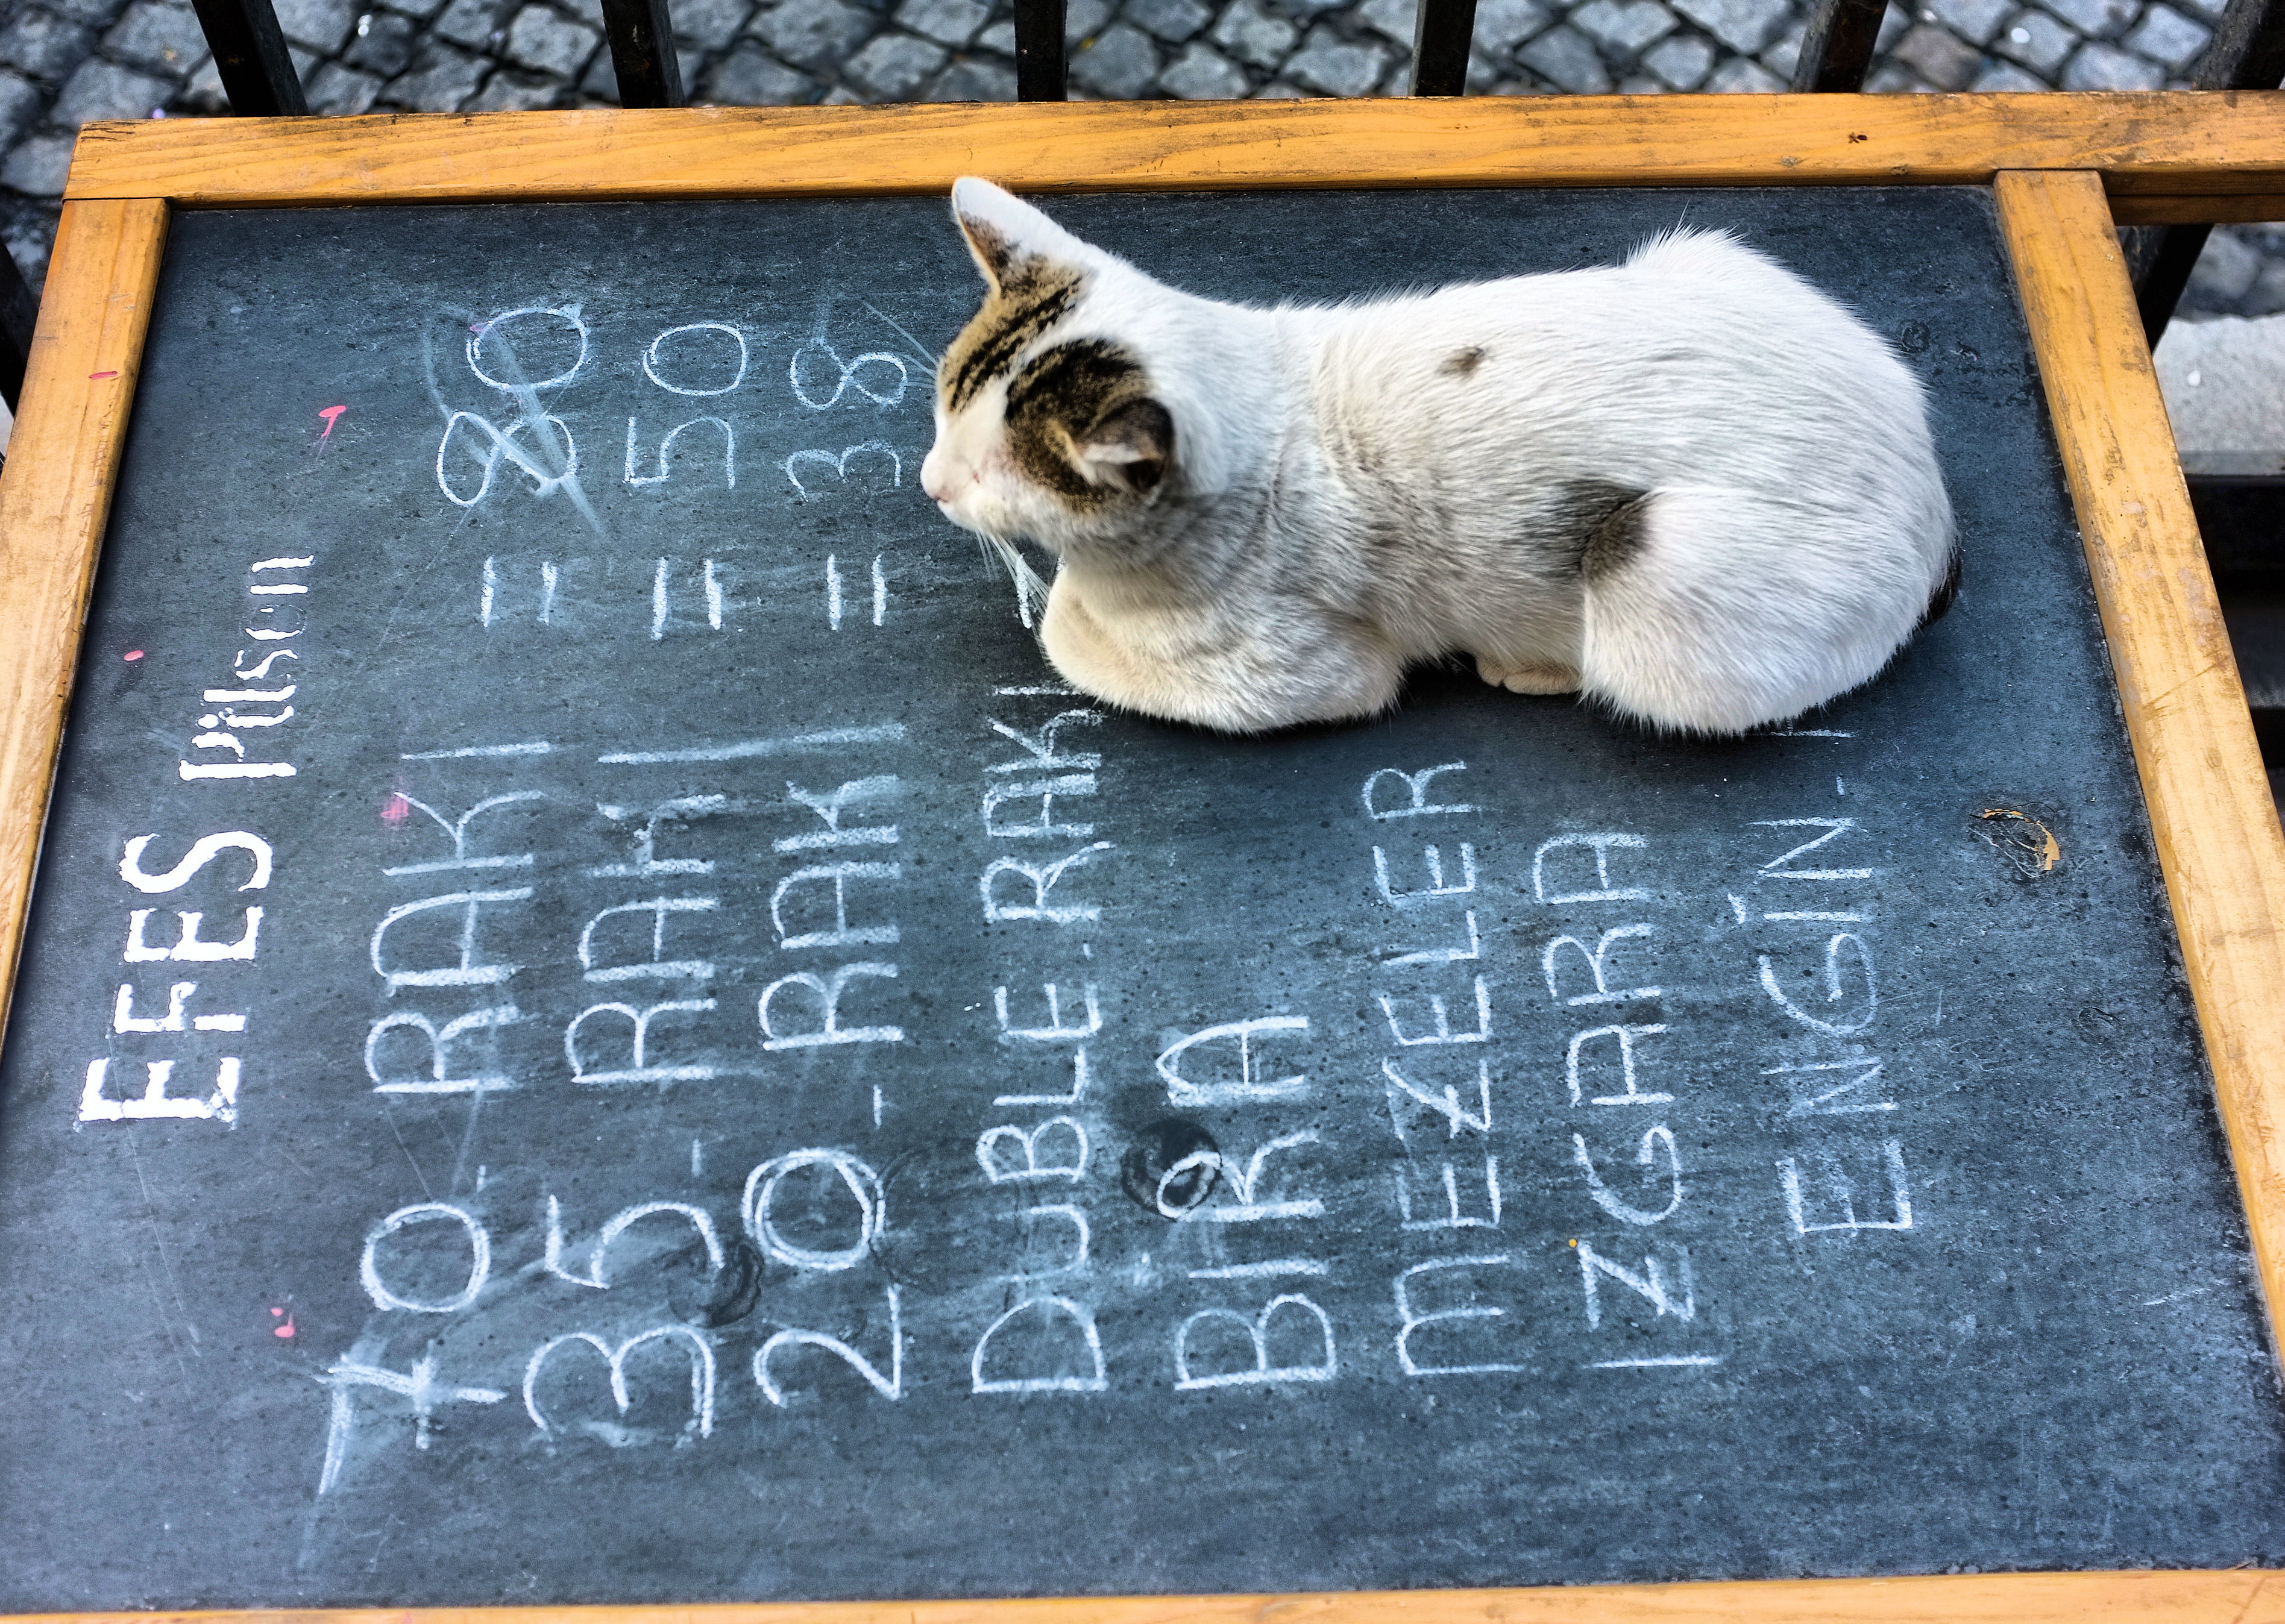 EFES Pilsen
70- RAKI = 80
35- RAKI = 50
20- RAKI = 38
DUBLE-RAKI
BIRA
MEZELER
IZGARA
ENGİN-